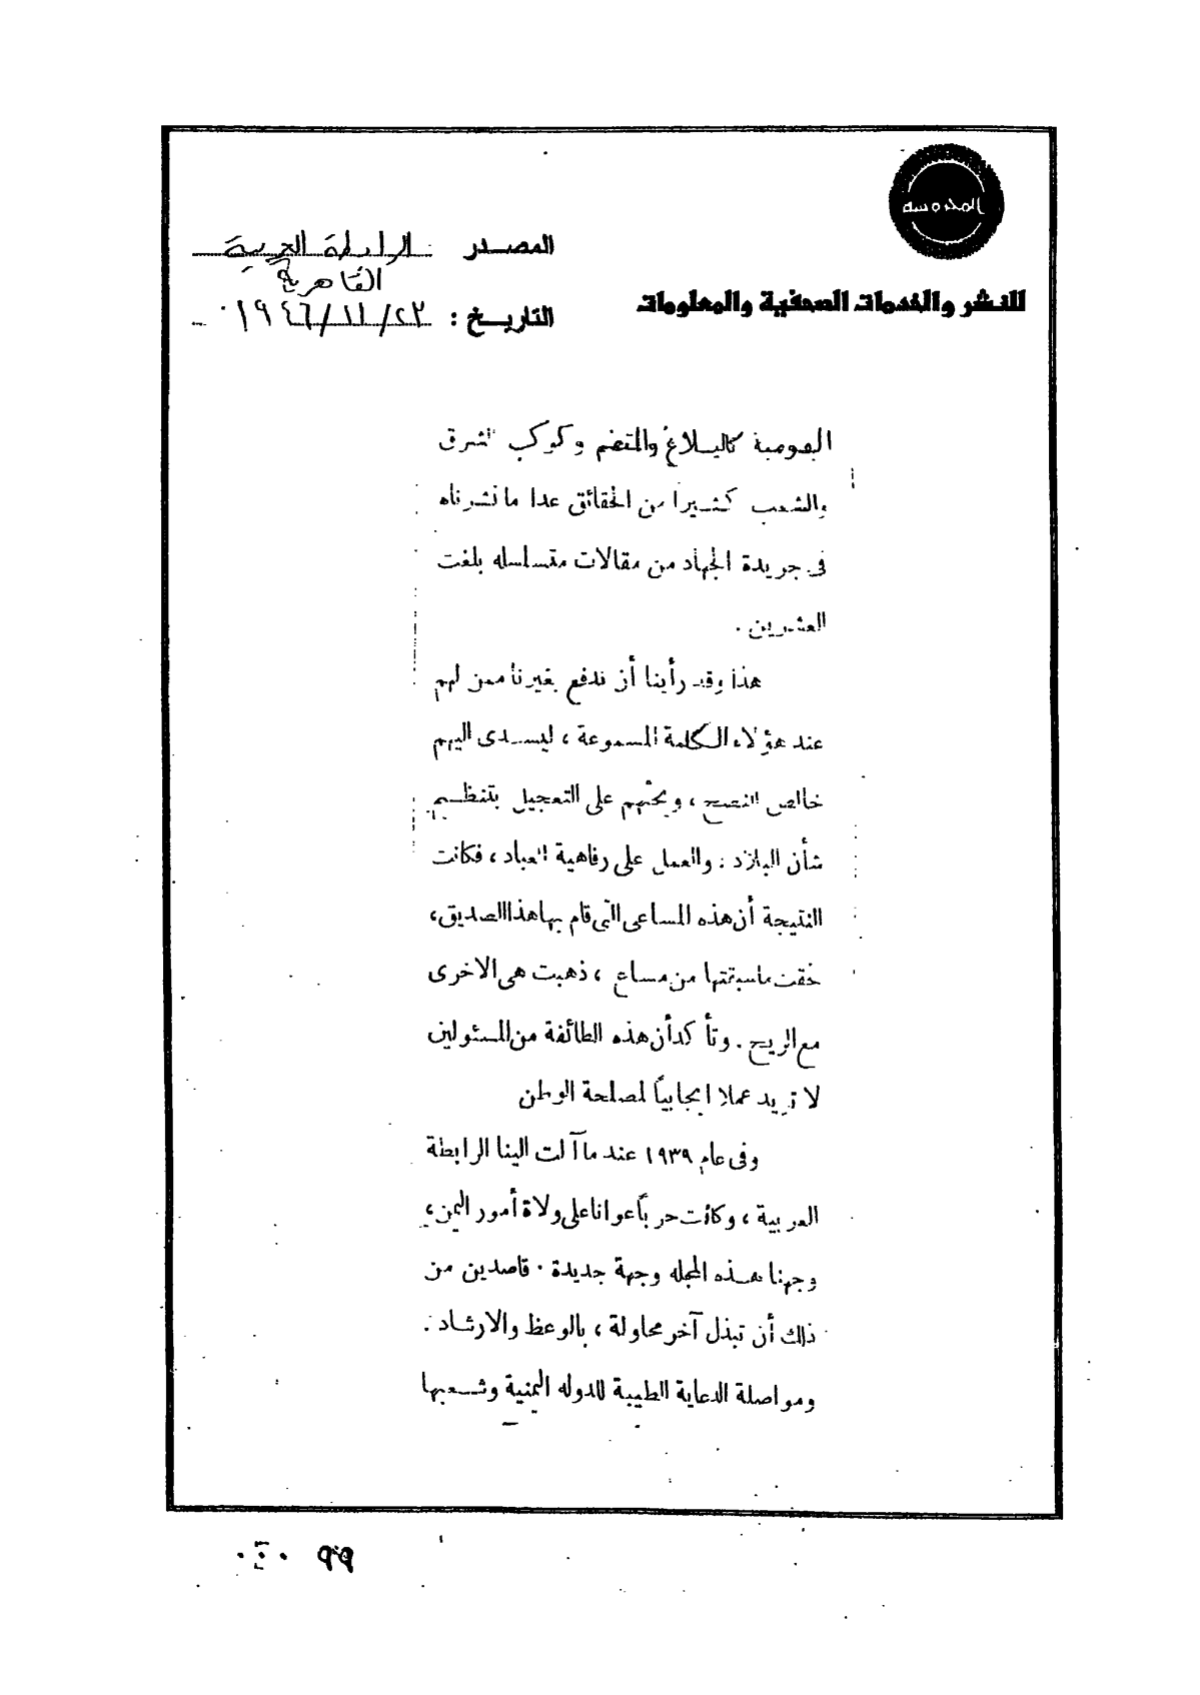 المحروسة
للنشر والخدمات الصحفية والمعلومات
المصدر : الرابطة العربية
القاهرية
التاريخ : ٢٣/١١/١٩٤٦
اليومية كالبلاغ والمقطم وكوكب الشرق
والشعب كثيراً من الحقائق عدا ما نشرناه
فى جريدة الجهاد من مقالات متسلسله بلغت
العشرين .
هذا وقد رأينا أن ندفع بغيرنا ممن لهم
عند هؤلاء الكلمة المسموعة ، ليسدى اليهم
خالص النصح ، ويحثهم على التعجيل بتنظيم
شأن البلاد . والعمل على رفاهية العباد ، فكانت
النتيجة أن هذه المساعى التى قام بها هذا الصديق ،
لحقت ماسبقتها من مساع ، ذهبت هى الاخرى
مع الريح . وتأكد أن هذه الطائفة من المسئولين
لا تريد عملا ايجابياً لمصلحة الوطن
وفى عام ١٩٣٩ عند ما آلت الينا الرابطة
العربية ، وكانت حرباً عوانا على ولاة أمور اليمن ،
وجهنا هذه المجله وجهة جديدة . قاصدين من
ذلك أن تبذل آخر محاولة ، بالوعظ والارشاد .
ومواصلة الدعاية الطيبة للدوله اليمنية وشعبها
٩٩